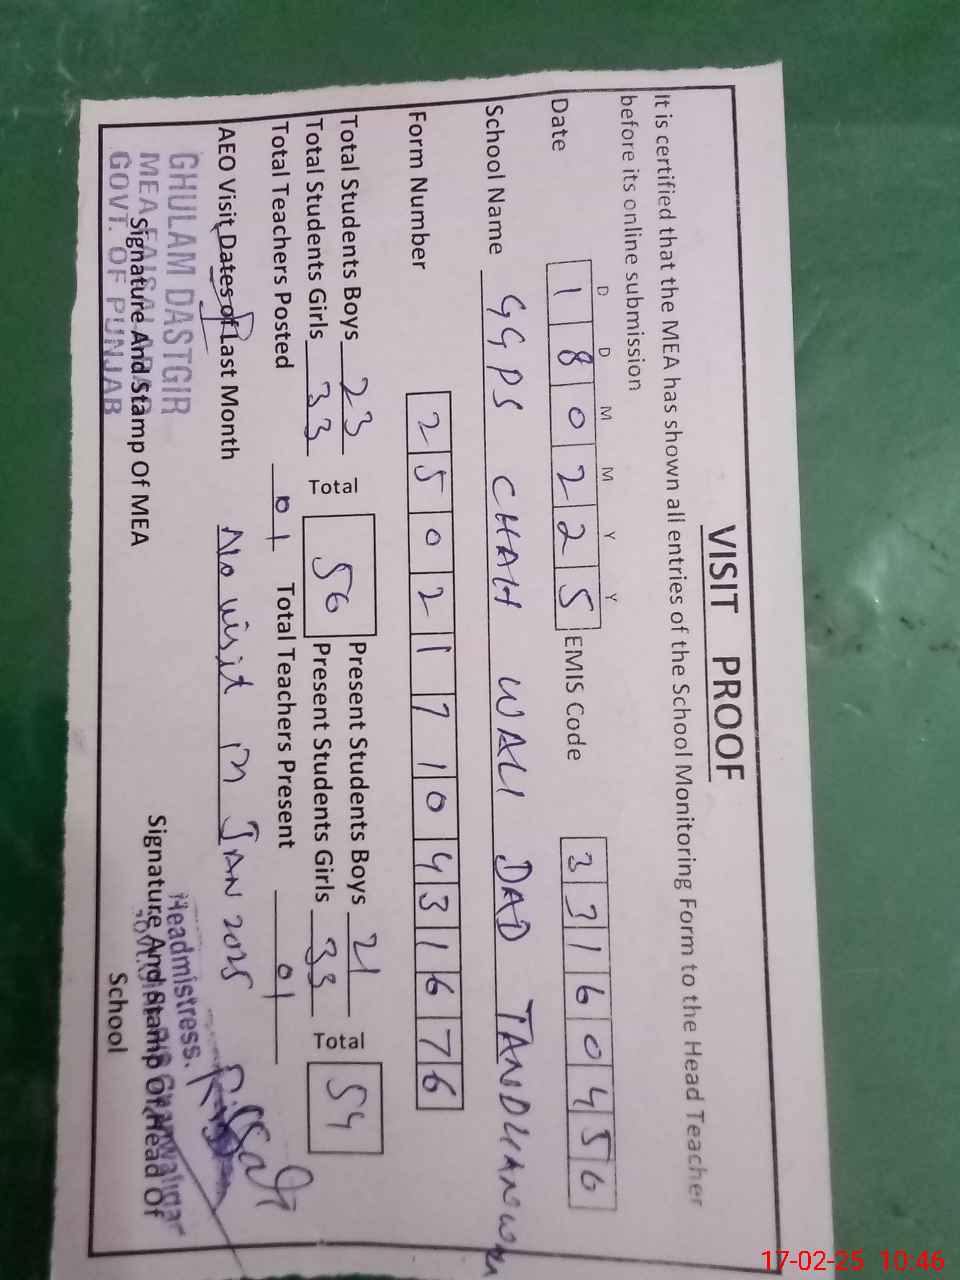 VISIT PROOF
It is certified that the MEA has shown all entries of the School Monitoring Form to the Head Teacher
before its online submission
D D M M Y Y
Date 180225 EMIS Code 33160456
School Name GGPS CHAH WALI DAD TANDLIANWALA
Form Number 25021710431676
Total Students Boys 23 Total 56 Present Students Boys 21 Total 54
Total Students Girls 33 Present Students Girls 33
Total Teachers Posted 01 Total Teachers Present 01
AEO Visit Dates of Last Month No visit in JAN 2025
GHULAM DASTGIR
MEA FAISALABAD
GOVT. OF PUNJAB
Signature And Stamp Of MEA
Headmistress.
Signature And Stamp Of Head Of
School
17-02-25 10:46